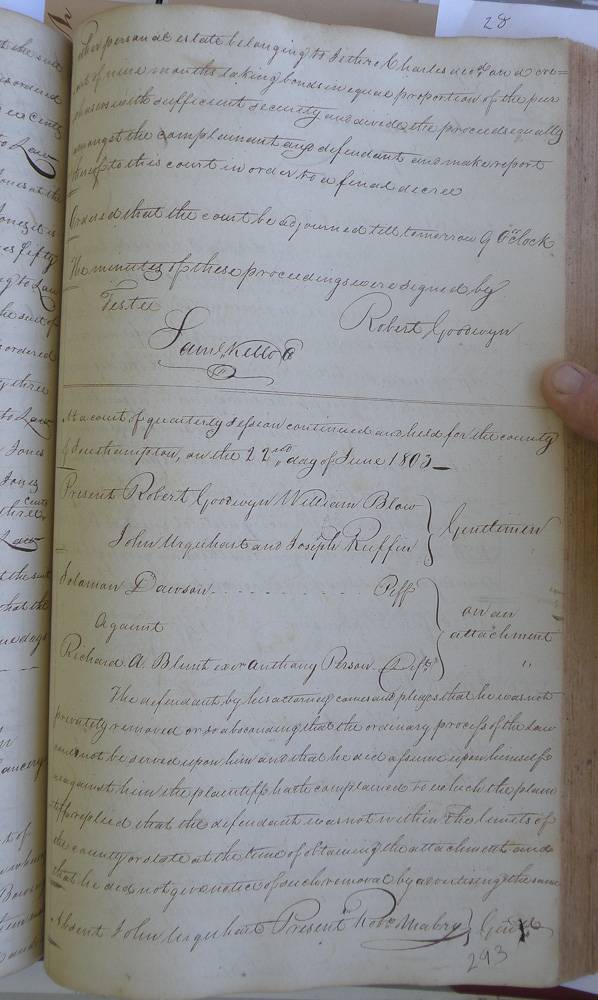 28
other personal estate belonging to Jethro Charles decd. and on a cre=
dit of nine months taking bonds in equal proportion of the pur
chasers with sufficient security and divide the proceeds equally
amongst the complainant and defendant and make report
thereof to this court in order to a final decree
Ordered that the court be adjourned till tomorrow 9 O'Clock
The minutes of these proceedings were signed by
Robert Goodwyn
Teste
Saml. Kello C
At a court of quarterly session continued and held for the county
of Southampton, on the 22nd day of June 1803
Present Robert Goodwyn William Blow
John Urquhart and Joseph Ruffin } Gentlemen
Solomon Dawson Plff
against
Richard A. Blunt exor Anthony Person Deft } on an attachment
The defendant by his attorney comes and pleads that he was not
privately removed or so absconding that the ordinary process of the law
could not be served upon him and that he did assume upon himself so
as against him the plaintiff hath complained to which the plain
tiff replied that the defendant was not within the limits of
the county or state at the time of obtaining the attachment and
that he did not give notice of such removal by advertising the same
Absent John Urquhart Present Robt. Mabry } Gent
293